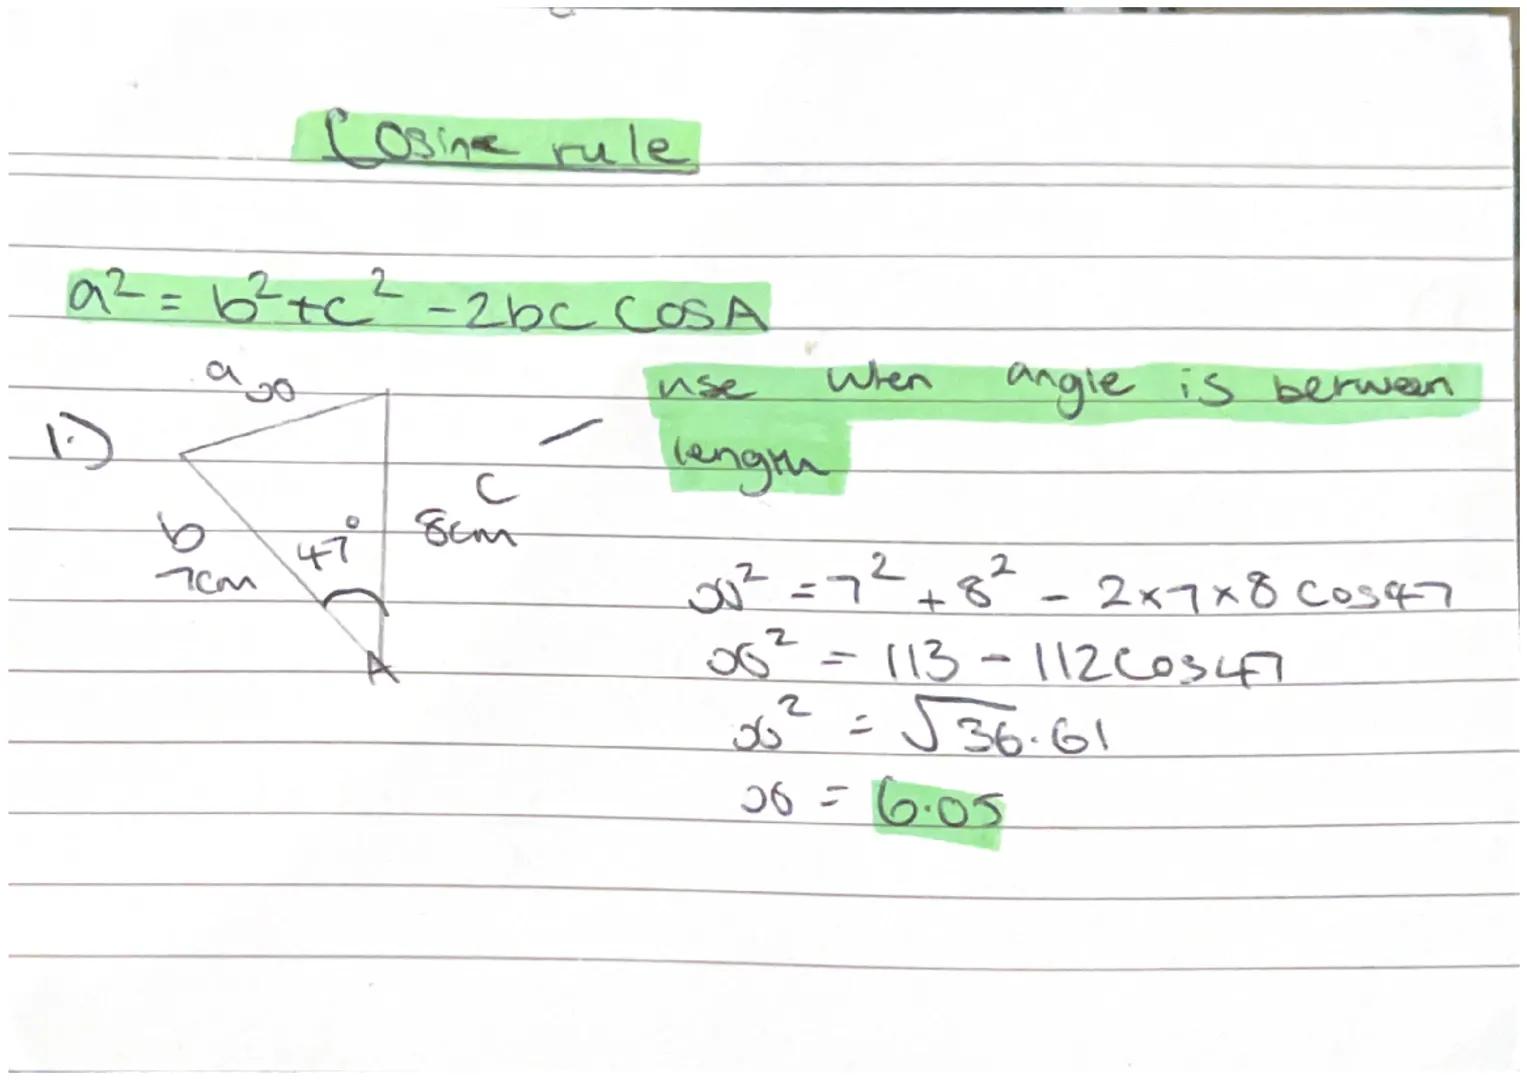 Cosine rule
a² = b² + c² - 2bc CosA
a x
use when angle is between
1.)
length
c
b
47°
8cm
7cm
x² = 7² + 8² - 2×7×8 Cos47
x² = 113 - 112Cos47
A
x² = √36.61
x = 6.05